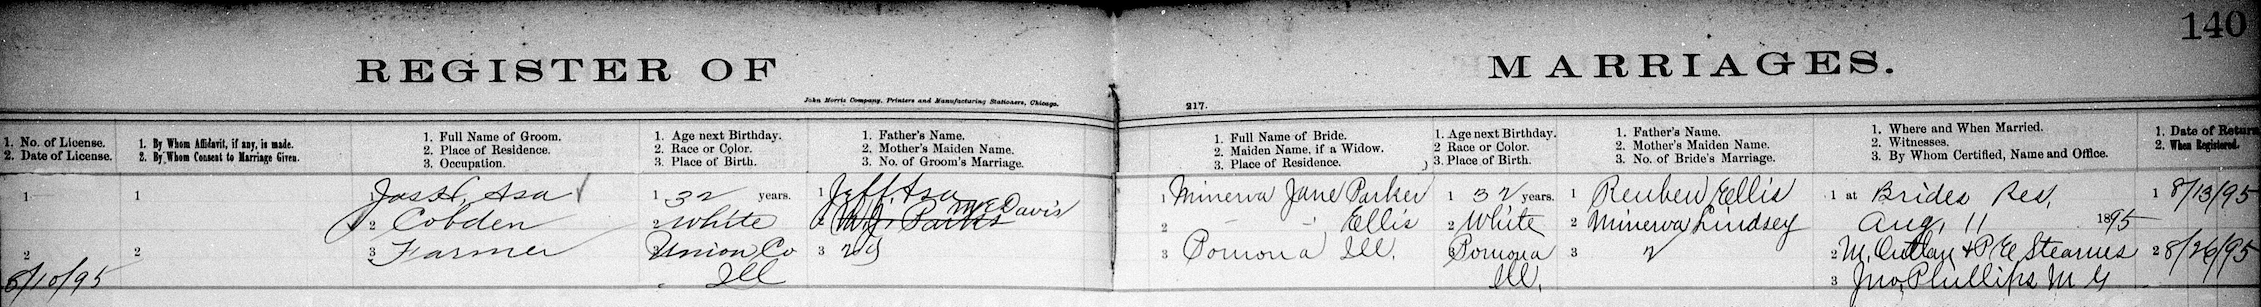 140
REGISTER OF MARRIAGES.
John Morris Company, Printers and Manufacturing Stationers, Chicago. 217.
1. No. of License.
2. Date of License.
1. By Whom Affidavit, if any, is made.
2. By Whom Consent to Marriage Given.
1. Full Name of Groom.
2. Place of Residence.
3. Occupation.
1. Age next Birthday.
2. Race or Color.
3. Place of Birth.
1. Father's Name.
2. Mother's Maiden Name.
3. No. of Groom's Marriage.
1. Full Name of Bride.
2. Maiden Name, if a Widow.
3. Place of Residence.
1. Age next Birthday.
2. Race or Color.
3. Place of Birth.
1. Father's Name.
2. Mother's Maiden Name.
3. No. of Bride's Marriage.
1. Where and When Married.
2. Witnesses.
3. By Whom Certified, Name and Office.
1. Date of Return
2. When Registered.
1
2
8/10/95
1
2
1 Jas H. Asa
2 Cobden
3 Farmer
1 32 years.
2 White
3 Union Co
Ill
1 Jeff. Asa
Davis
2 M. J. Parks
3 2
1 Minerva Jane Parker
2 Ellis
3 Pomona Ill.
1 32 years.
2 White
3 Pomona
Ill.
1 Reuben Ellis
2 Minerva Lindsey
3 2
1 at Brides Res.
Aug. 11 1895
2 M. Outlaw & P. E. Stearnes
3 Jno. Phillips M G
1 8/13/95
2 8/26/95